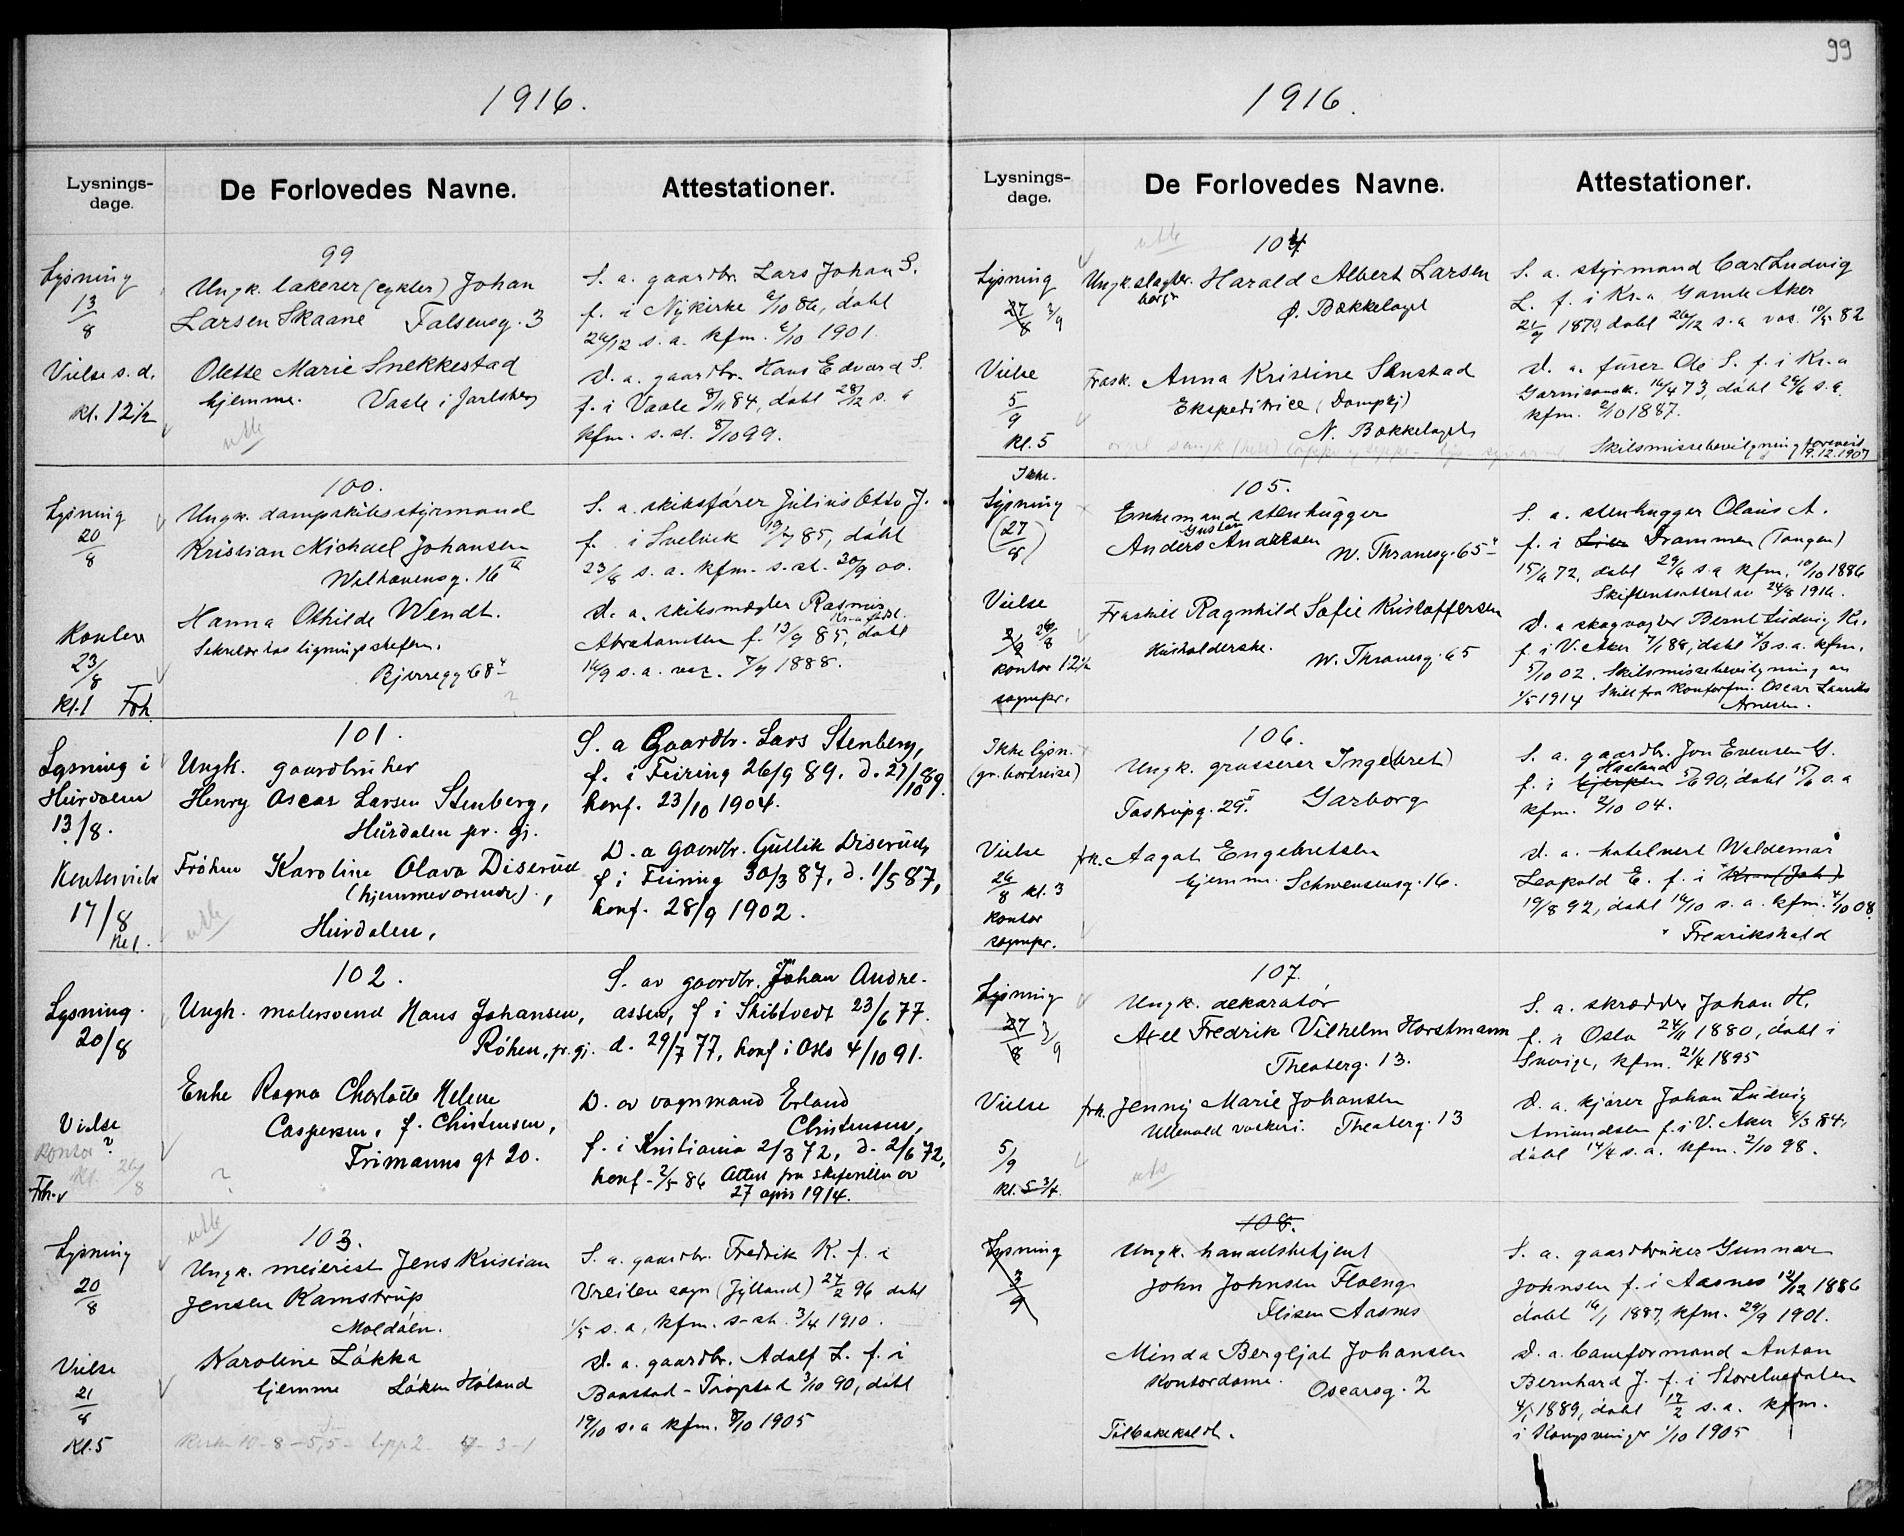 99
1916.
1916.
Lysnings-
dage.
De Forlovedes Navne.
Attestationer.
99
Lysning
13/8
Ungk. lakerer (cykler) Johan
Larsen Skaane Falsensg. 3
S. a. gaardbr. Lars Johan S.
f. i Nykirke 6/10 86, døbt
26/12 s. a. kfm. 6/10 1901.
Vielse s. d.
kl. 12 1/2
Olette Marie Snekkestad
hjemme. Vaale i Jarlsberg
D. a. gaardbr. Hans Edvard S.
f. i Vaale 8/11 84, døbt 28/12 s. a
kfm. s. st. 8/10 99.
100.
Lysning
20/8
Ungk. dampskibsstyrmand
Kristian Michael Johansen
Welhavensg. 16 II
S. a. skibsfører Julius Otto J.
f. i Svelvik 19/7 85, døbt
23/8 s. a. kfm. s. st. 30/9 00.
Kontor
23/8
kl. 1 Frh.
Hanna Othilde Wendt.
Sekretær hos ligningschefen.
Bjerregg 68 4
D. a. skibsmægler Rasmus
Abrahamsen f. 13/9 85, døbt
16/9 s. a. vac. 7/9 1888.
101.
Lysning i
Hurdalen
13/8.
Ungk. gaardbruker
Henry Oscar Larsen Stenberg,
Hurdalen pr. gj.
S. a Gaardbr. Lars Stenberg,
f. i Feiring 26/9 89. d. 27/10 89.
konf. 23/10 1904.
17/8
Kl 1.
Frøken Karoline Olava Diserud
(hjemmeværende),
Hurdalen,
D. a gaardbr. Gullik Diserud,
f i Feiring 30/3 87, d. 1/5 87,
konf. 28/9 1902.
102.
Lysning.
20/8
Ungk. malersvend Hans Johansen,
Røken, pr. gj.
S. av gaardbr. Johan Andre-
assen, f i Skibtvedt 23/6 77.
d. 29/7 77, konf i Oslo 4/10 91.
Vielse
Kontor?
Kl. 26/8
Frh.
Enke Ragna Charlotte Helene
Caspersen, f. Christensen,
Frimanns gt 20.
D. av vognmand Erland
Christensen,
f. i Kristiania 2/3 72, d. 2/6 72,
konf - 2/5 86 Attest fra skifteretten av
27 april 1914.
103.
Lysning
20/8
Ungk. meierist Jens Kristian
Jensen Kamstrup
Moldøen.
S. a. gaardbr. Fredrik K. f. i
Vreilev sogn (Jylland) 27/2 96 døbt
1/5 s. a, kfm. s. st. 3/4 1910.
Vielse
21/8
Kl. 5
Karoline Løkka
hjemme Løken Høland
D. a. gaardbr. Adolf L. f. i
Baastad - Trøgstad 3/10 90, døbt
19/10 s. a kfm. 8/10 1905
Lysnings-
dage.
De Forlovedes Navne.
Attestationer.
104
Lysning
27/8 3/9
Ungk. Harald Albert Larsen
Ø. Bækkelaget
S. a. styrmand Carl Ludvig
L. f. i Kr.a Gamle Aker
døbt 26/12 s. a vac. 82
Vielse
5/9
kl. 5
Frask. Anna Kristine Sanstad
Ekspeditrice (Dampkj)
N. Bækkelaget
D. a. furer Ole S. f. i Kr.a
Garnisonsk. 16/4 73, døbt 29/6 s. a.
kfm. 2/10 1887.
Skilsmissebevilgning forevist
9.12.1907
105.
Ikke.
Lysning
(27/8)
Enkemand stenhugger
Gustav
Anders Andersen W. Thranesg. 65
S. a. stenhugger Olaus A.
f. i Lier Drammen (Tangen)
15/6 72, døbt 29/9 s. a kfm. 10/10 1886
Skifteretsattest av 24/8 1916.
Vielse
26/8
kontor 12 1/2
sognepr.
Fraskilt Ragnhild Sofie Kristoffersen
Husholderske. W. Thranesg. 65
D. a skogvogter Bernt Ludvig K.
f i V. Aker 7/1 88, døbt 4/3 s. a. kfm.
5/10 02. Skilsmissebevilgning av
1/5 1914 Skilt fra kontorfm. Oscar Laurits
Arnesen.
106.
Ikke lysn.
(gr. bortreise)
Ungk. grosserer Inge(bret)
Tostrupg. 29 I Garborg
S. a. gaardbr. Jon Evensen G.
Høiland
5/6 90, døbt 15/6 s. a
kfm. 2/10 04.
Vielse
26/8 kl. 3
kontor
sognepr.
frk. Aagot Engebretsen
hjemme. Schwensensg. 16.
D. a. hotelvert Waldemar
Leopold E. f. i Kr.a (Joh.)
19/8 92, døbt 16/10 s. a. kfm. 4/10 08
Fredrikshald
107.
Lysning
27/8 3/9
Ungk. dekoratør
Axel Fredrik Vilhelm Horstmann
Theaterg. 13.
S. a. skrædder Johan H.
f. i Oslo 24/11 1880, døbt i
Sverige, kfm. 21/4 1895
Vielse
5/9
kl. 5 3/4.
frk. Jenny Marie Johansen
Ullevold vaskeri. Theaterg. 13
D. a. kjører Johan Ludvig
Amundsen f. i V. Aker 4/3 84,
døbt 14/4 s. a. kfm. 2/10 98.
108.
Lysning
3/9
Ungk. handelsbetjent
John Johnsen Floeng
Flisen Aasnes
S. a. gaardbruker Gunnar
Johnsen f. i Aasnes 12/12 1886
døbt 16/1 1887, kfm. 29/9 1901.
Minda Bergljot Johansen
Kontordame. Oscarsg. 2
D. a. baneformand Anton
Bernhard J. f. i Storelvedalen
4/1 1889, døbt 17/2 s. a. kfm.
i Kongsvinger 1/10 1905
Tilbakekaldt.